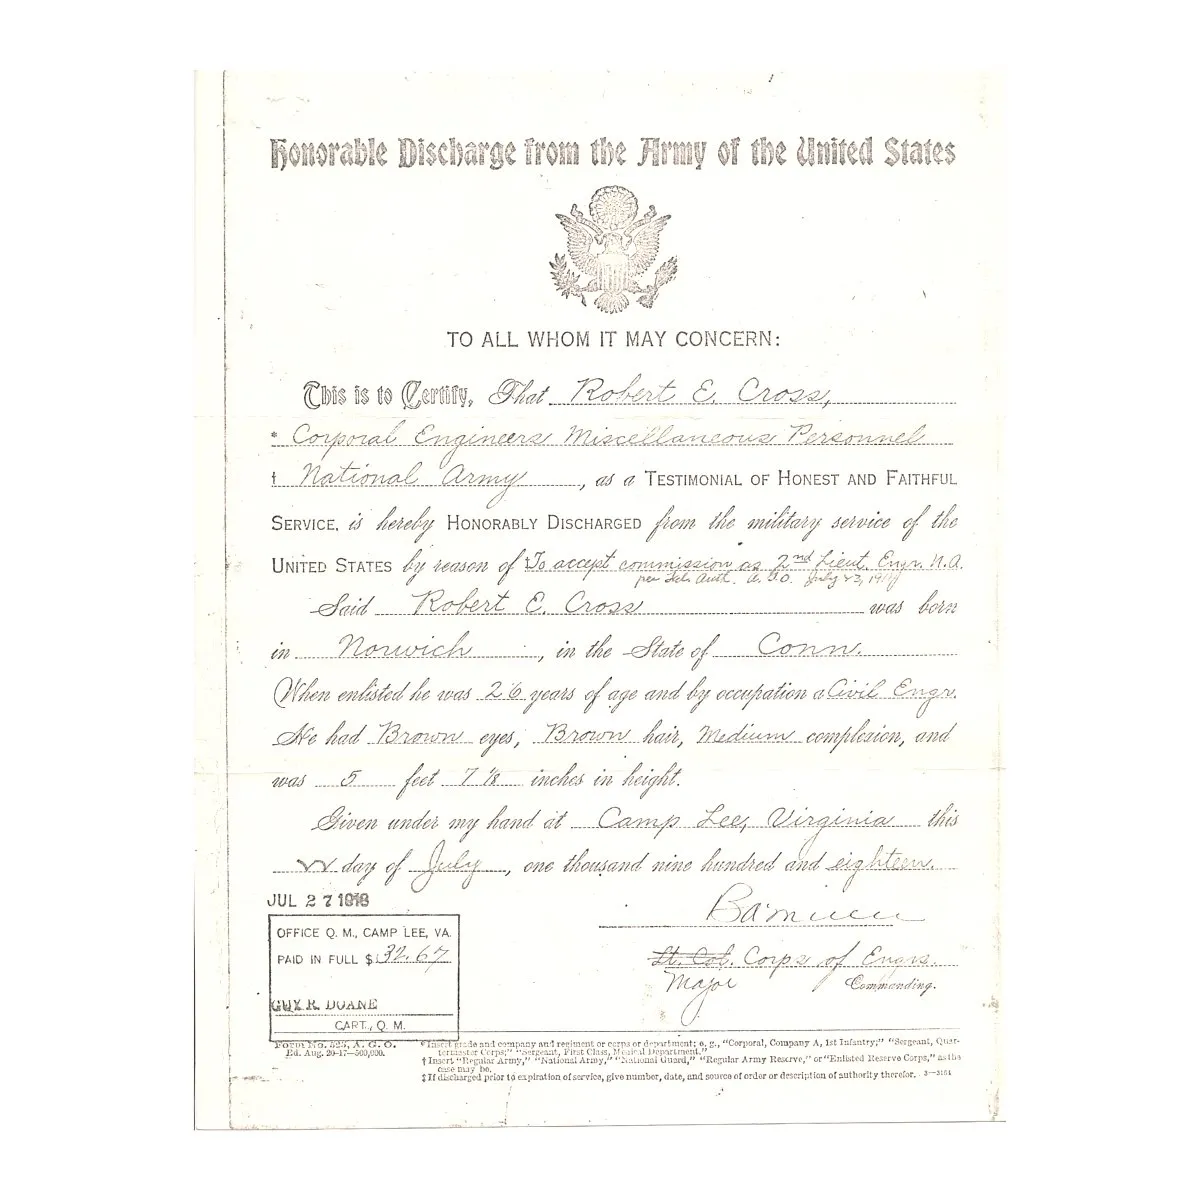 Honorable Discharge from the Army of the United States
TO ALL WHOM IT MAY CONCERN:
This is to Certify, That Robert E. Cross,
* Corporal Engineers Miscellaneous Personnel
† National Army, as a TESTIMONIAL OF HONEST AND FAITHFUL
SERVICE, is hereby HONORABLY DISCHARGED from the military service of the
UNITED STATES by reason of ‡To accept commission as 2nd Lieut. Engr. N.A.
per Auth. A.G.O. July 23, 1918
Said Robert E. Cross was born
in Norwich, in the State of Conn.
When enlisted he was 26 years of age and by occupation a Civil Engr.
He had Brown eyes, Brown hair, Medium complexion, and
was 5 feet 7 1/8 inches in height.
Given under my hand at Camp Lee, Virginia this
day of July, one thousand nine hundred and eighteen.
JUL 27 1918
OFFICE Q. M., CAMP LEE, VA.
PAID IN FULL $ 32.67
GUY R. DOANE
CAPT., Q. M.
Lt. Col. Corps of Engrs.
Major Commanding.
Form No. 525, A. G. O.
Ed. Aug. 20-17—500,000.
*Insert grade and company and regiment or corps or department; e. g., "Corporal, Company A, 1st Infantry;" "Sergeant, Quar-
termaster Corps;" "Sergeant, First Class, Medical Department."
†Insert "Regular Army," "National Army," "National Guard," "Regular Army Reserve," or "Enlisted Reserve Corps," as the
case may be.
‡If discharged prior to expiration of service, give number, date, and source of order or description of authority therefor. 3—3164